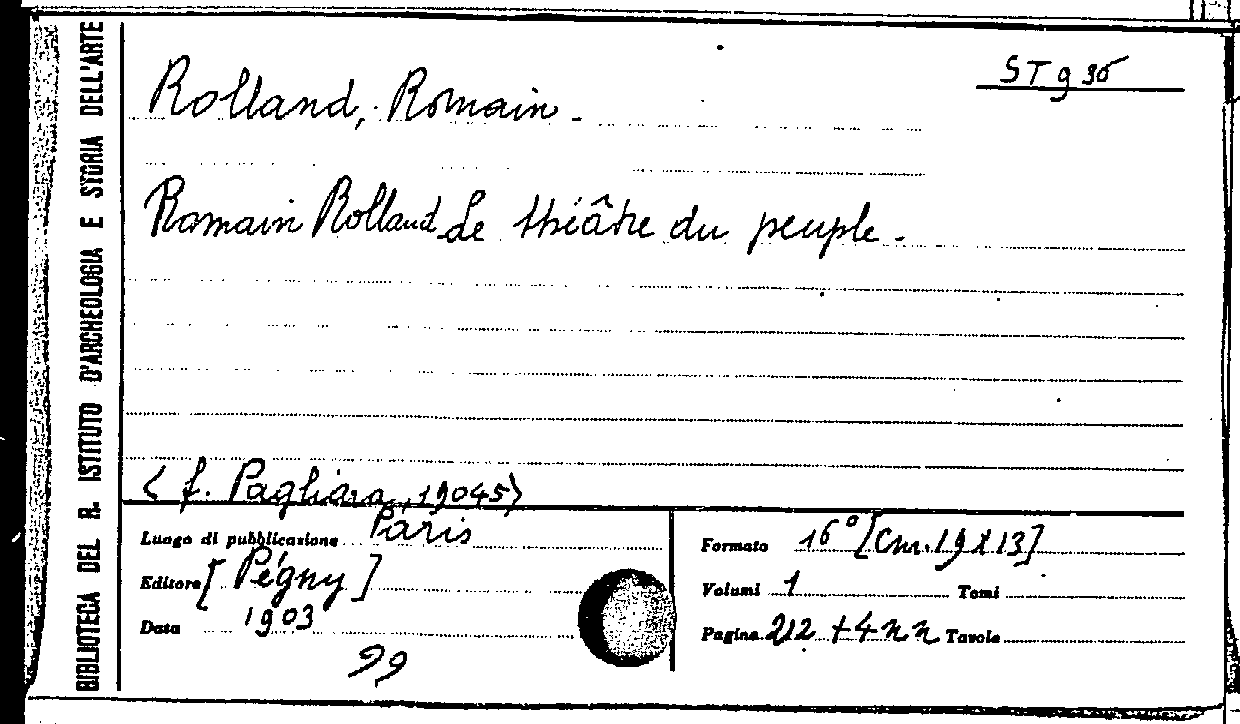 BIBLIOTECA DEL R. ISTITUTO D'ARCHEOLOGIA E STORIA DELL'ARTE
ST g 36
Rolland, Romain.
Romain Rolland Le théâtre du peuple.
< f. Pagliara, 19045>
Luogo di pubblicazione Paris
Editore [Pégny]
Data 1903
99
Formato 16° [Cm. 19 X 13]
Volumi 1 Tomi
Pagine 212 + 4 n n Tavole